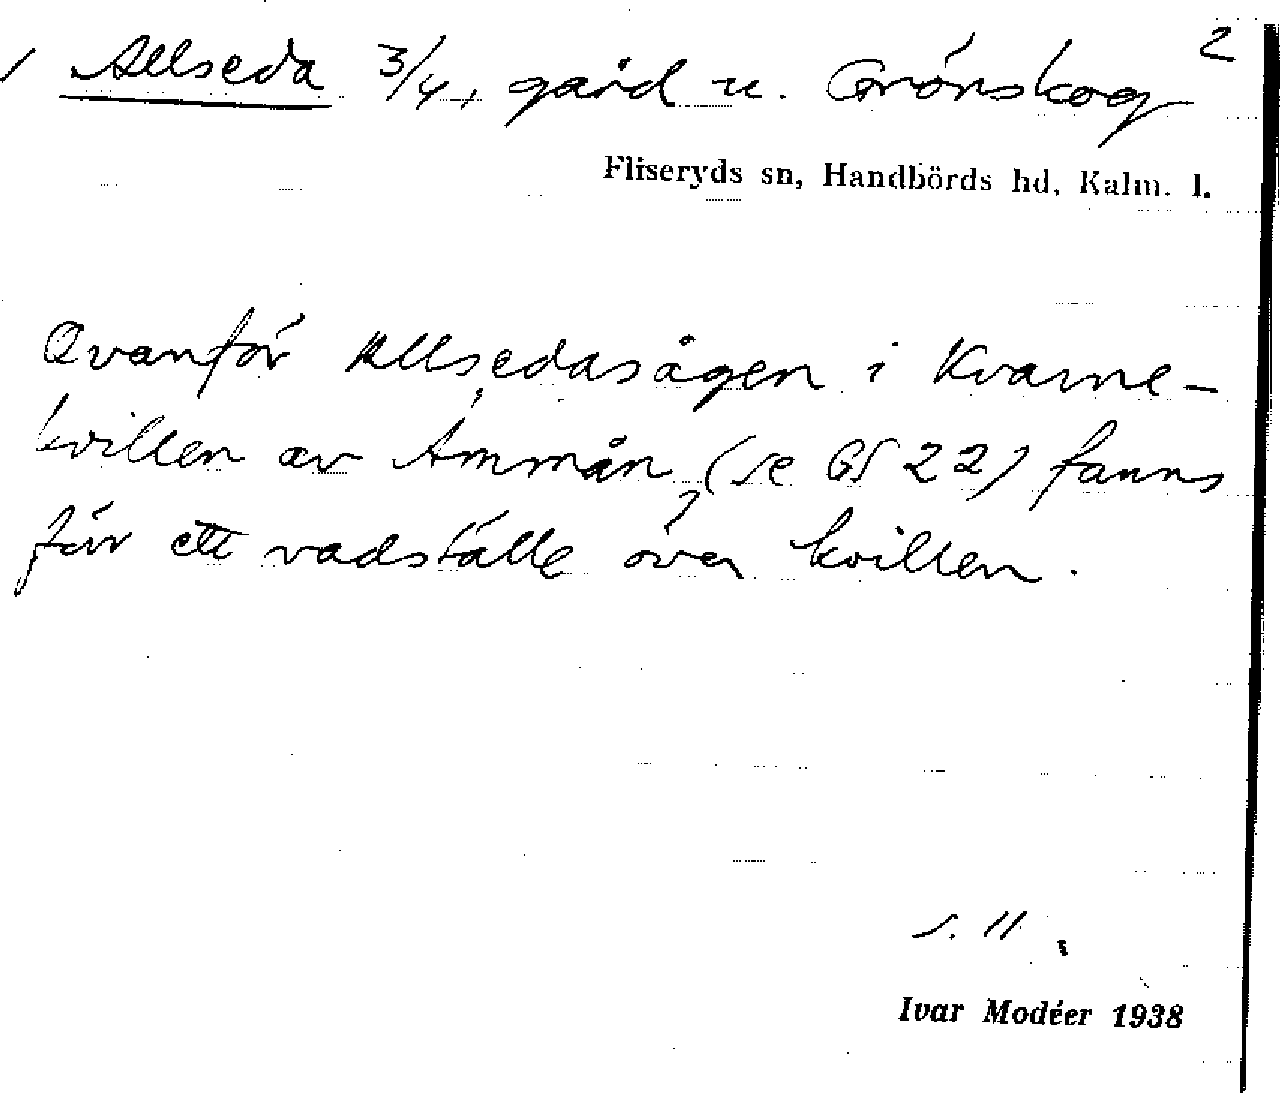 Allseda 3/4, gård u. Grönskog 2
Fliseryds sn, Handbörds hd, Kalm. l.
Ovanför Allsedasågen i Kvarne-
kvillen av Ämmån (se GS 22) fanns
förr ett vadställe över kvillen.
s. 11.
Ivar Modéer 1938